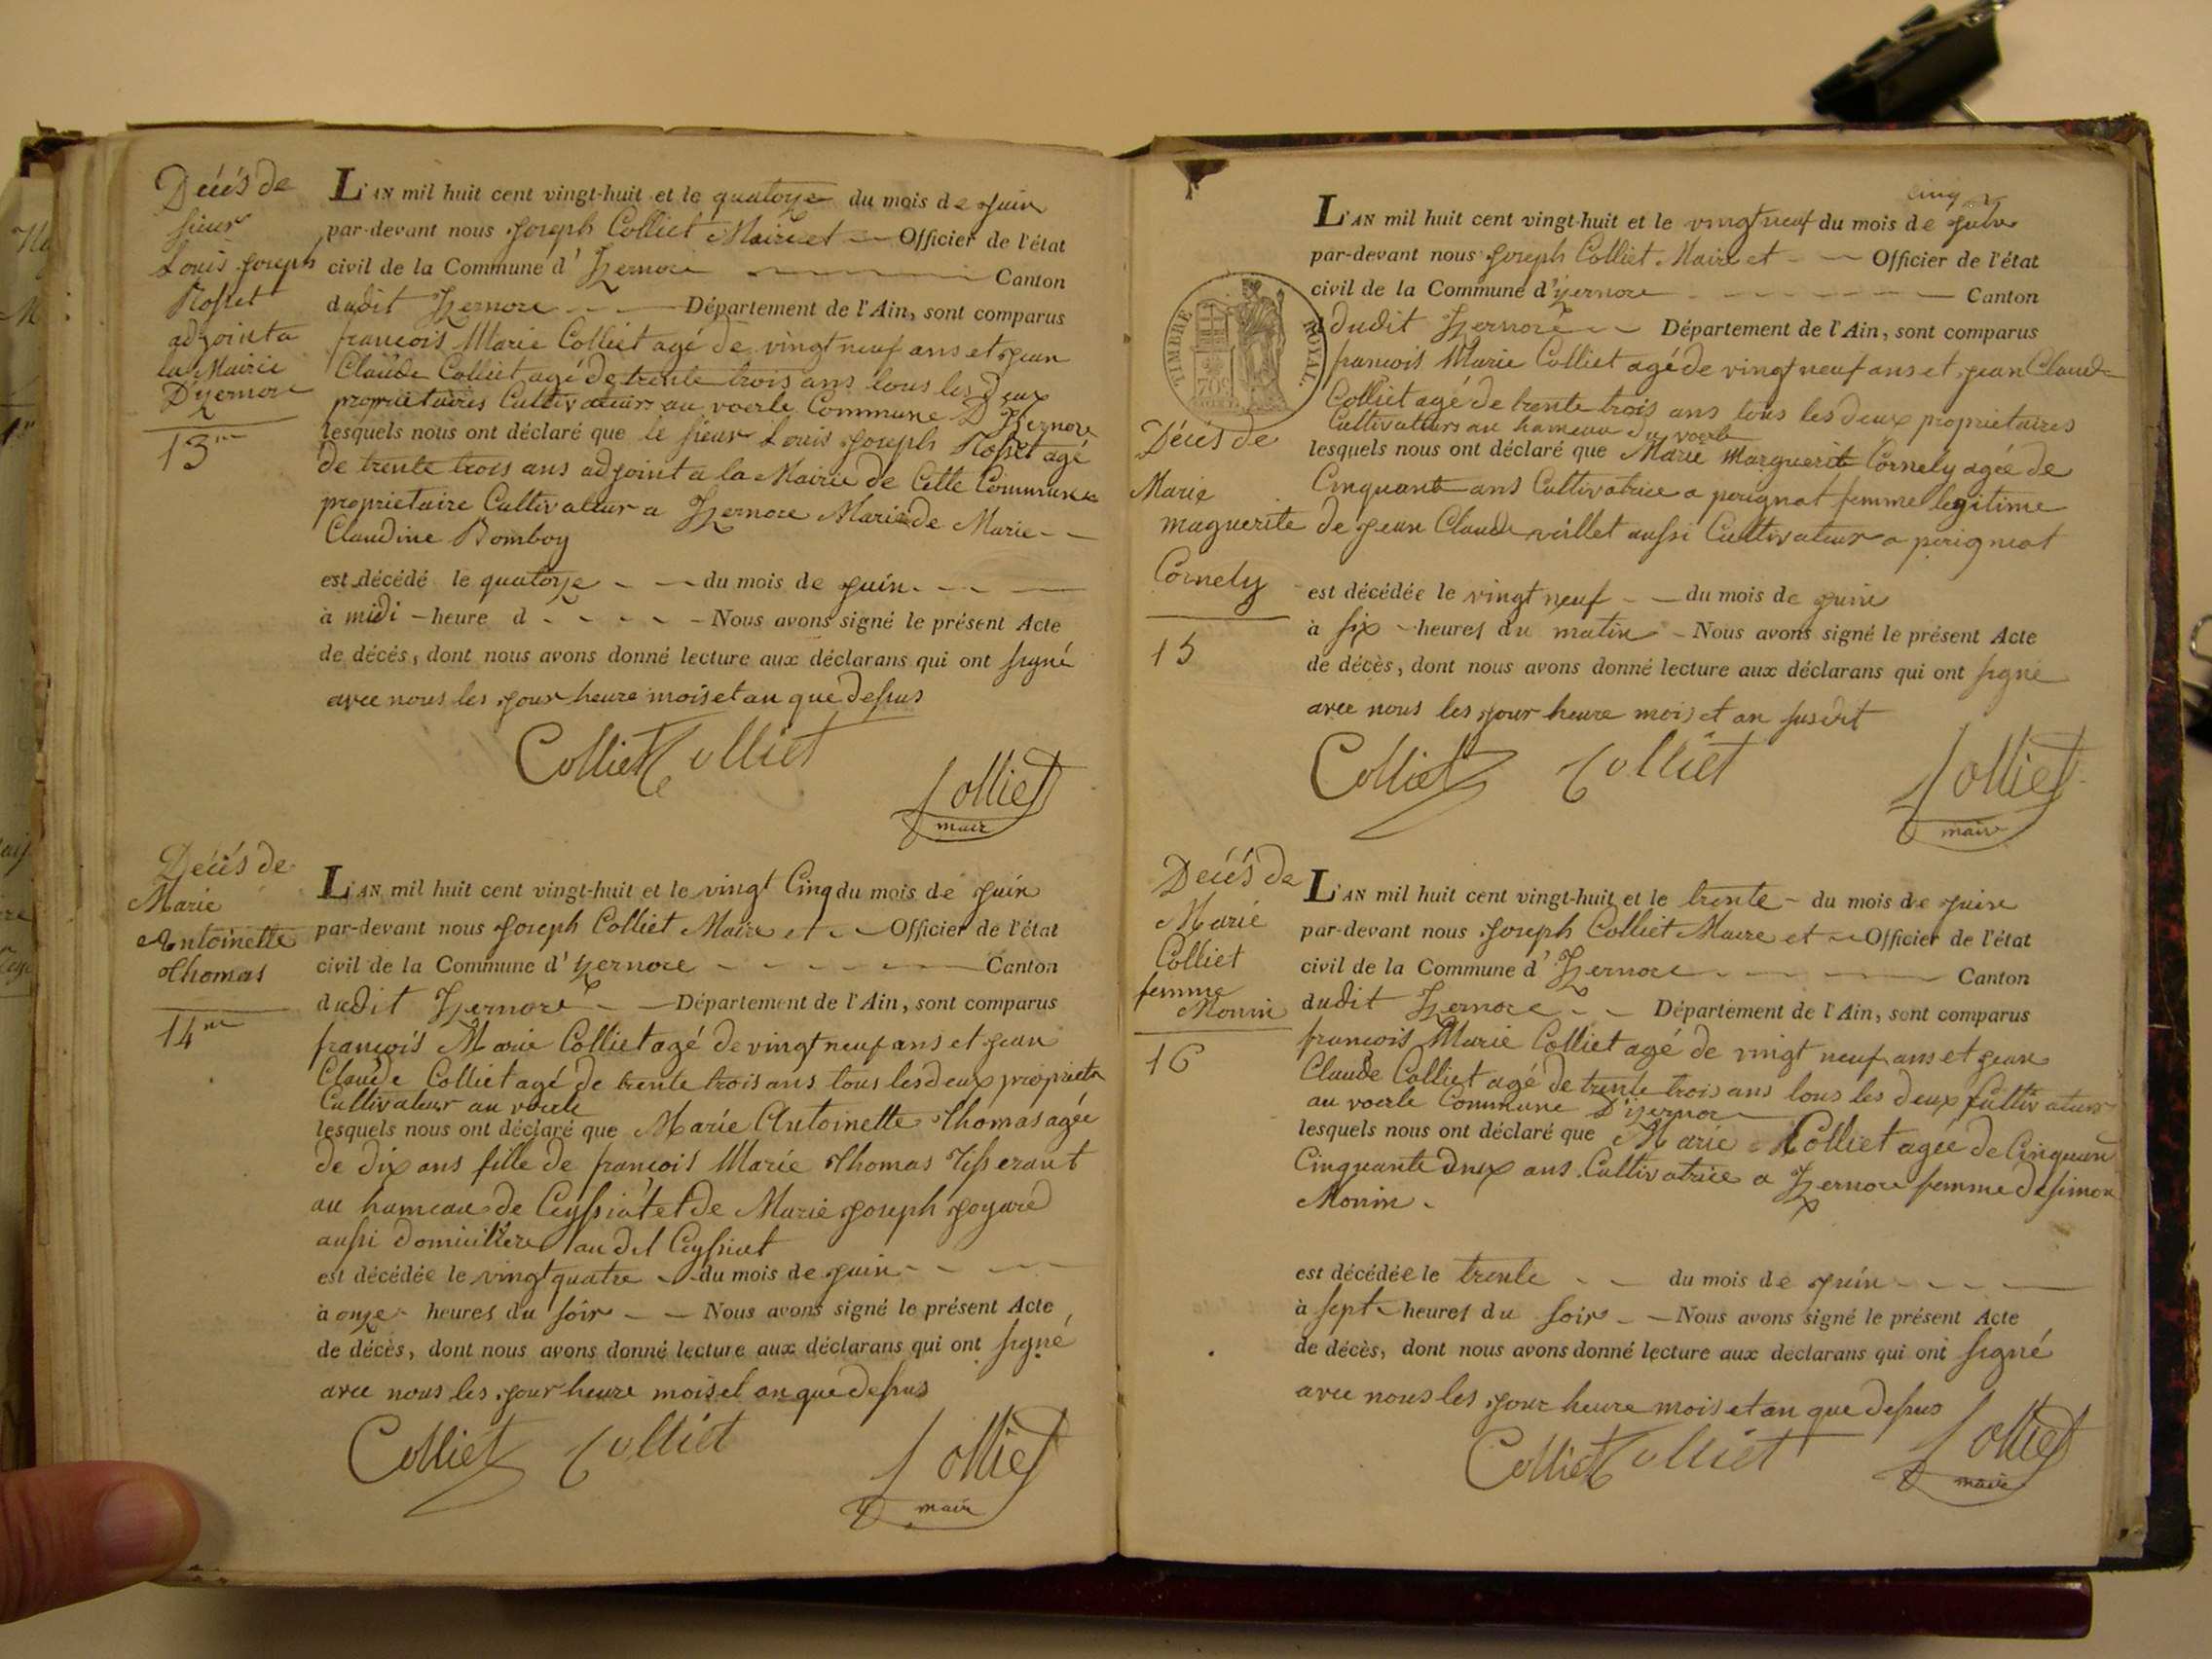 Décés de
sieur
Louis Joseph
Rosset
adjoint a
la Mairie
D'yzernore
13me
L'AN mil huit cent vingt-huit et le quatorze du mois de juin
par-devant nous Joseph Colliet Maire et Officier de l'état
civil de la Commune d' Izernore Canton
dudit Izernore Département de l'Ain, sont comparus
francois Marie Colliet agé de vingt neuf ans et jean
Claude Colliet agé de trente trois ans tous les deux
proprietaires Cultivateurs au voerle Commune D'Izernore
lesquels nous ont déclaré que le sieur Louis Joseph Rosset agé
de trente trois ans adjoint a la Mairie de Cette Commune
proprietaire Cultivateur a Izernore Marié de Marie
Claudine Bomboy
est décédé le quatorze du mois de juin
à midi heure d Nous avons signé le présent Acte
de décès, dont nous avons donné lecture aux déclarans qui ont signé
avec nous les jour heure mois et an que dessus
Colliet Colliet
Colliet
maire
Decés de
Marie
Antoinette
Thomas
14me
L'AN mil huit cent vingt-huit et le vingt Cinq du mois de juin
par-devant nous Joseph Colliet Maire et Officier de l'état
civil de la Commune d' yzernore Canton
dudit Izernore Département de l'Ain, sont comparus
francois Marie Colliet agé de vingt neuf ans et jean
Claude Colliet agé de trente trois ans tous les deux proprieta
Cultivateur au voerle
lesquels nous ont déclaré que Marie Antoinette Thomas agée
de dix ans fille de francois Marie Thomas Tisserant
au hameau de Ceyssiat et de Marie joseph joyard
aussi domiciliere au dit Ceyssiat
est décédée le vingt quatre du mois de juin
à onze heures du soir Nous avons signé le présent Acte
de décès, dont nous avons donné lecture aux déclarans qui ont signé
avec nous les jour heure mois et an que dessus
Colliet Colliet
Colliet
maire
TIMBRE ROYAL.
Décés de
Marie
maguerite
Cornely
15
cinq
L'AN mil huit cent vingt-huit et le vingt neuf du mois de juin
par-devant nous Joseph Colliet Maire et Officier de l'état
civil de la Commune d'yzernore Canton
dudit Izernore Département de l'Ain, sont comparus
francois Marie Colliet agé de vingt neuf ans et jean Claude
Colliet agé de trente trois ans tous les deux proprietaires
Cultivateurs au hameau du voerle
lesquels nous ont déclaré que Marie Marguerite Cornely agée de
Cinquante ans Cultivatrice a perignat femme legitime
de jean Claude veillet aussi Cultivateur a perignat
est décédée le vingt neuf du mois de juin
à six heures du matin Nous avons signé le présent Acte
de décès, dont nous avons donné lecture aux déclarans qui ont signé
avec nous les jour heure mois et an susdit
Colliet Colliet Colliet
maire
Decés de
Marie
Colliet
femme
Monin
16
L'AN mil huit cent vingt-huit et le trente du mois de juin
par-devant nous Joseph Colliet Maire et Officier de l'état
civil de la Commune d' Izernore Canton
dudit Izernore Département de l'Ain, sont comparus
francois Marie Colliet agé de vingt neuf ans et jean
Claude Colliet agé de trente trois ans tous les deux Cultivateurs
au voerle Commune D'izernore
lesquels nous ont déclaré que Marie Colliet agée de Cinquan
Cinquante deux ans Cultivatrice a Izernore femme de simon
Monin
est décédée le trente du mois de juin
à sept heures du soir Nous avons signé le présent Acte
de décès, dont nous avons donné lecture aux déclarans qui ont signé
avec nous les jour heure mois et an que dessus
Colliet Colliet Colliet
maire